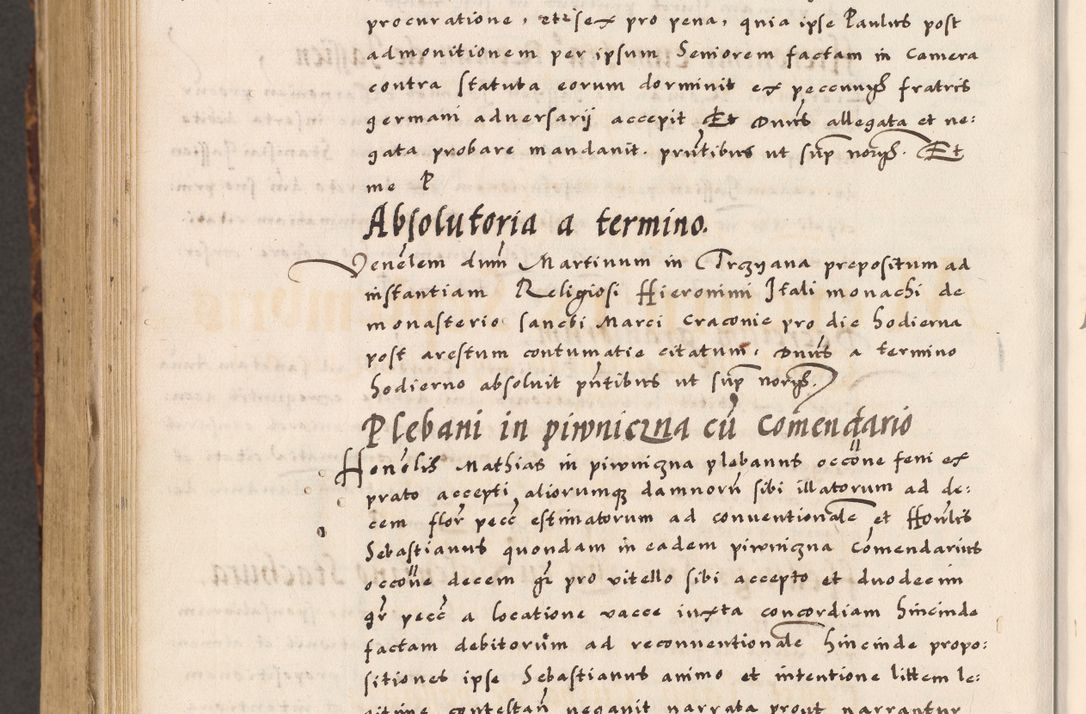 procuratione, et sex pro pena, quia ipse Paulus post
admonitionem per ipsum Seniorem factam in Camera
contra statuta eorum dormivit ex peccunijs fratris
germani adversarij accepit Et Dnus allegata et ne:
gata probare mandavit. pntibus ut sup norijs. Et
me P
Absolutoria a termino.
Venelem dnm Martinum in Trczyana prepositum ad
instantiam Religiosi Hieronimi Itali monachi de
monasterio sancti Marci Craconie pro die hodierna
post arestum contumatie citatum, Dnus a termino
hodierno absolvit pntibus ut sup norijs.
Plebani in piwniczna cu comendario
Honolis Mathias in piwniczna plebanus occone feni ex
prato accepti aliorumq damnoru sibi illatorum ad de:
cem flor pecc estimatorum ad conventionale et Honlis
Sebastianus quondam in eadem piwniczna Comendarius
occone decem gr pro vitello sibi accepto et duodecim
gr pecc a locatione vacce iuxta concordiam hincinde
factam debitorum ad reconventionale hincinde propo:
sitiones ipse Sebastianus animo et intentione littem le:
gitime contestan negavit narrata prout narrantur